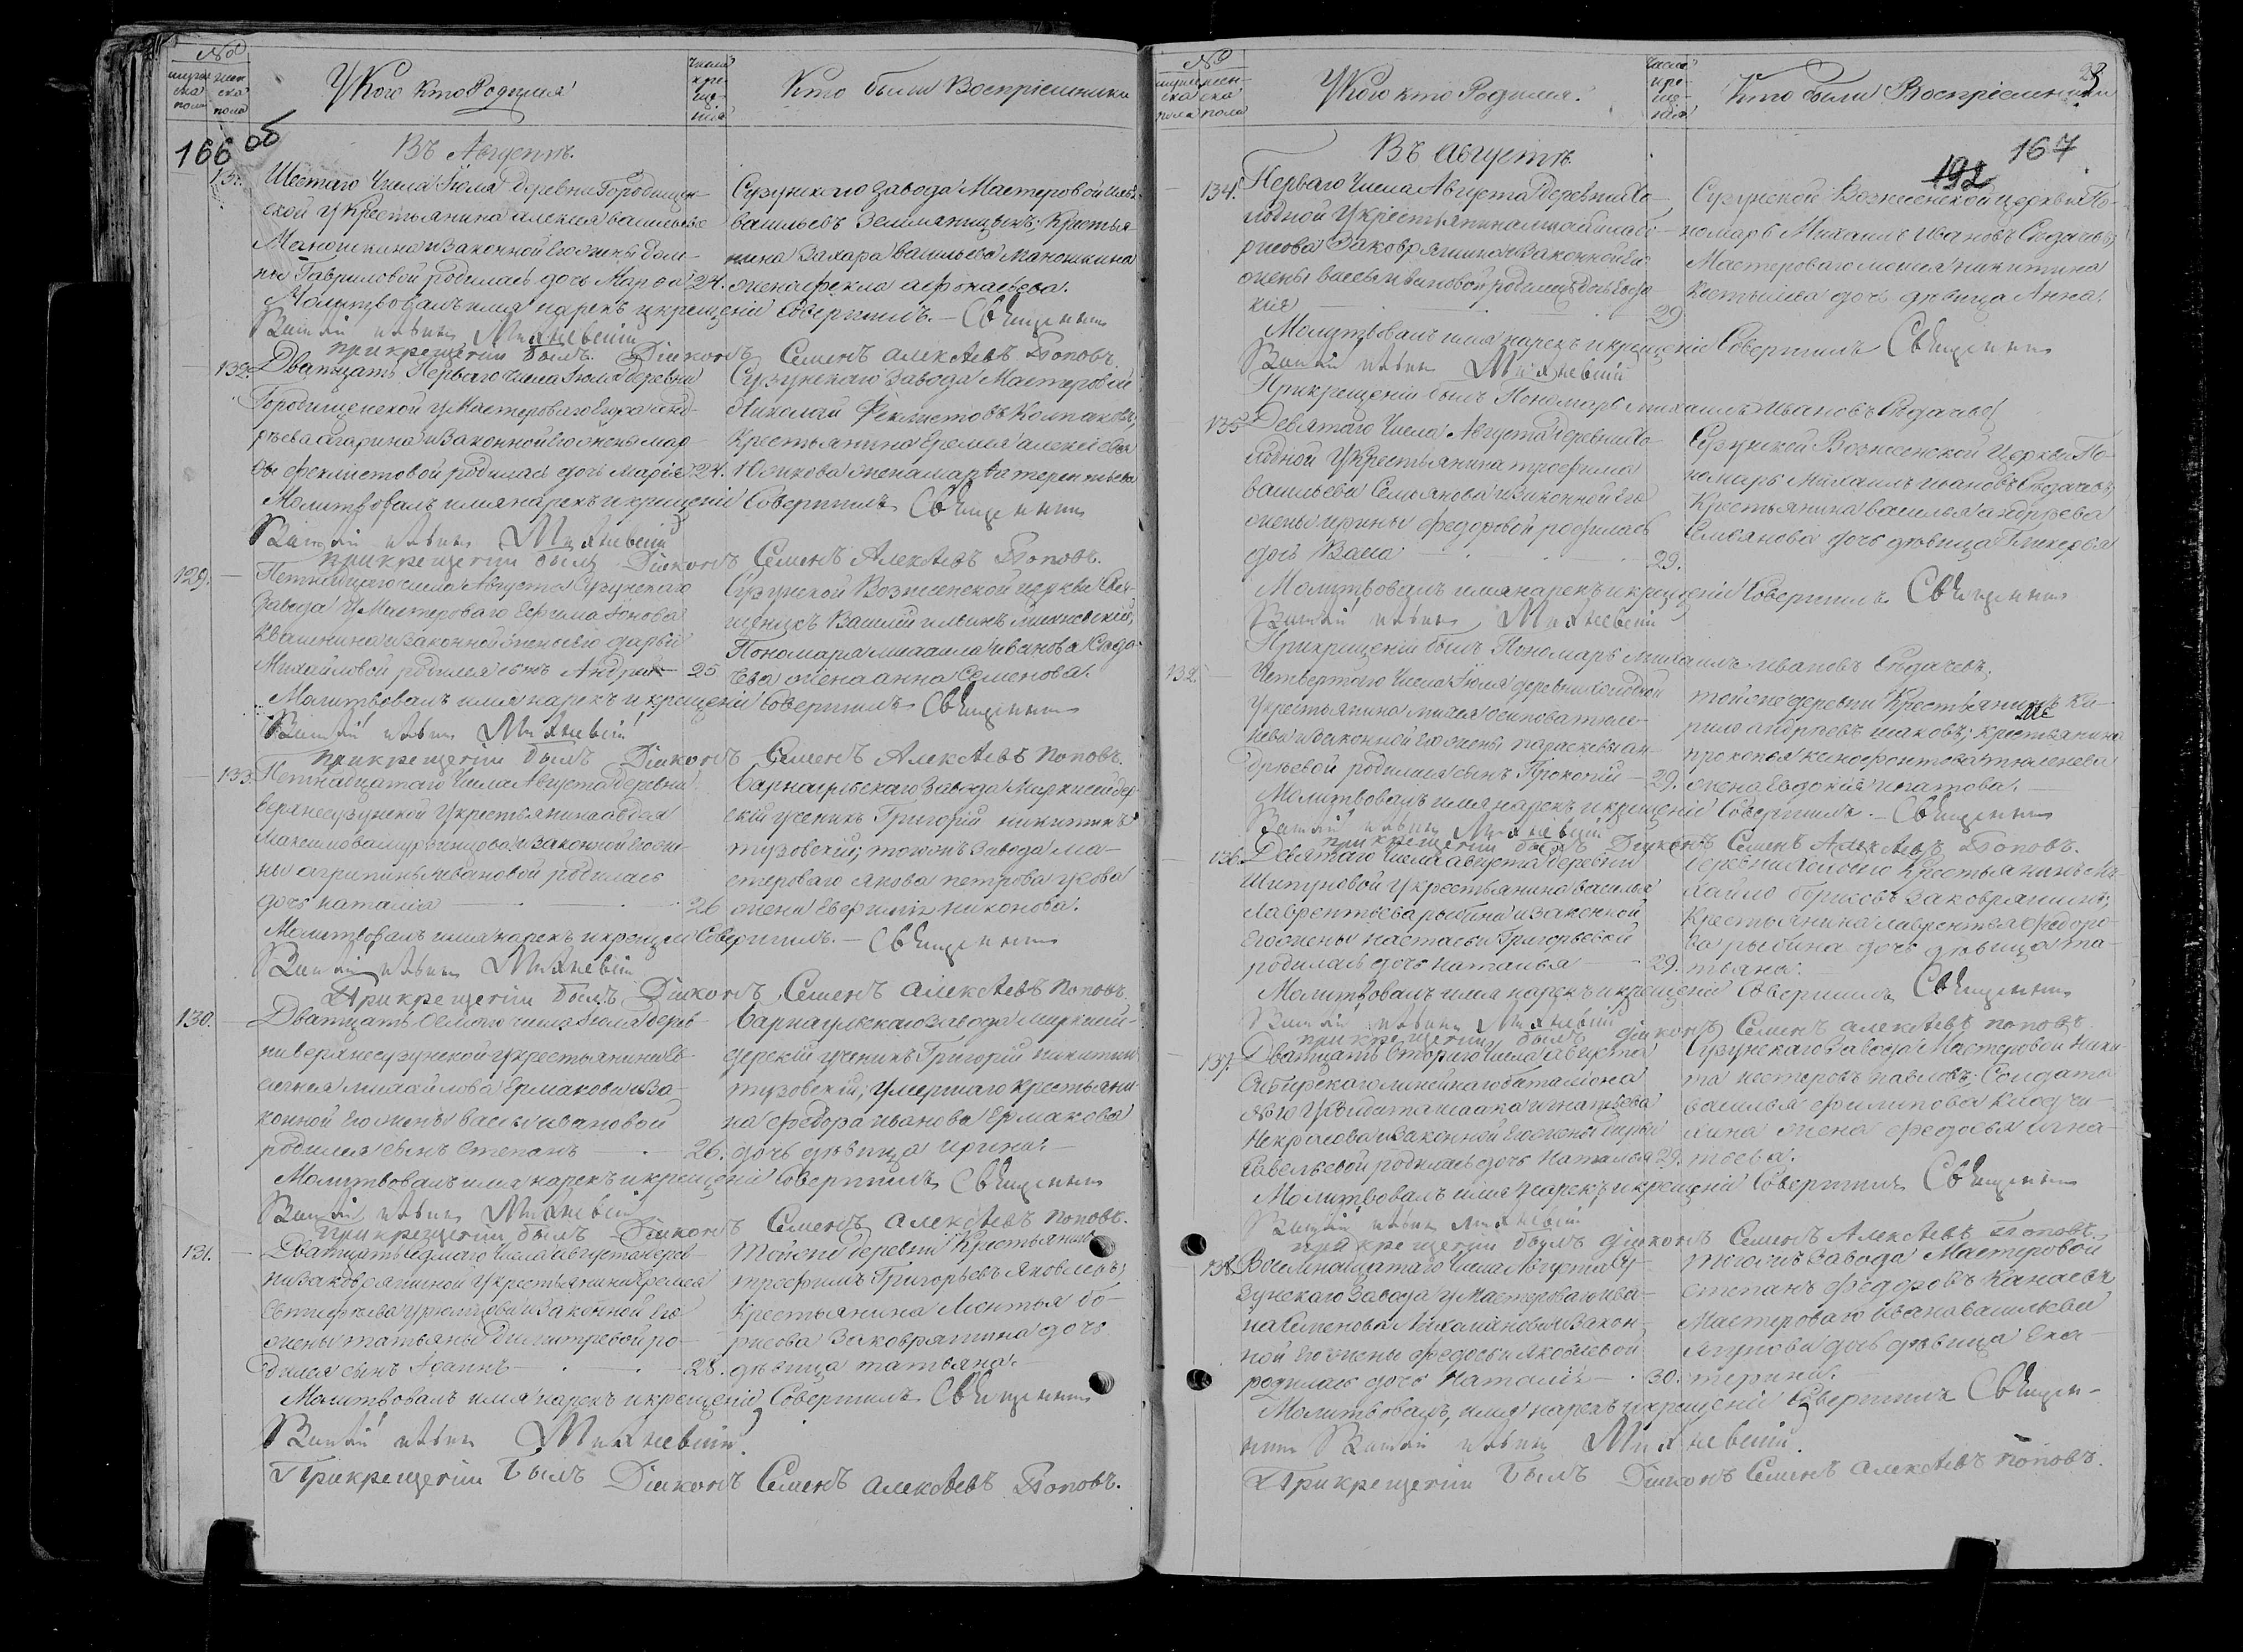 №
мужеска пола
женска пола
У Кого Кто Родился
Числа крещенія
Кто были Воспріемники
166 об
Въ Августѣ.
131. Шестаго Числа Іюля деревни Городищен-
ской у Крестьянина алексея васильева
Манюшкина и Законной Его жены Дом-
ны Гавриловой родилась дочь Марѳа 24.
Сузунского завода Мастеровой
васильевъ Крестья-
нина Захара васильева Манюшкина
жена фекла афонасьева.
Молитвовалъ имя нарекъ и крещеніе Совершилъ. — Священникъ
Василій Ильинъ Михневскій
при крещеніи былъ Діаконъ Семенъ алексѣевъ Поповъ.
132. Дватцать Перваго числа Іюля деревни
Городищенской у Мастероваго
и Законной Его жены мар-
фы феклистовой родилась дочь Марія 24.
Сузунскаго Завода Мастеровой
Николай Феклистовъ Колпаковъ,
Крестьянина Еремея алексіева
жена марѳа терентьева
Молитвовалъ имя нарекъ и крещеніе Совершилъ Священникъ
Василій Ильинъ Михневскій
при крещеніи былъ Діаконъ Семенъ Алексѣевъ Поповъ.
129. Петнадцаго числа Августа Сузунскаго
Завода у Мастероваго Ефима Іонова
Квашнина и Законной жены его дарьи
Михайловой родился сынъ Андрей 25
Сузунской Вознесенской церкви Свя-
щенникъ Василій ильинъ михневскій,
Пономаря михаила иванова Сѣда-
чева жена анна Семенова.
Молитвовалъ имя нарекъ и крещеніе Совершилъ Священникъ
Василій Ильинъ Михневскій
при крещеніи былъ Діаконъ Семенъ Алексѣевъ поповъ.
133. Петнадцатаго Числа Августа деревни
верхнесузунской у крестьянина авдея
Максимова и Законной его же-
ны агрипины ивановой родилась
дочь наталія 26
барнаульскаго завода Маркшейдер-
скій ученикъ Григорій никитинъ
тузовскій; тогожъ Завода ма-
стероваго якова петрова усова
жена никонова.
Молитвовалъ имя нарекъ и крещеніе Совершилъ. — Священникъ
Василій Ильинъ Михневскій
При крещеніи былъ Діаконъ Семенъ алексѣевъ поповъ.
130. Дватцать Семаго числа Іюля дерев-
ни верхнесузунской у крестьянина Ев-
сигнея михайлова Ермакова и За-
конной Его жены Васы ивановой
родился сынъ Степанъ 26.
барнаульскаго завода маркшей-
дерскій ученикъ Григорій никитинъ
тузовскій; умершаго крестьяни-
на федора иванова Ермакова
дочь дѣвица ирина.
Молитвовалъ имя нарекъ и крещеніе Совершилъ Священникъ
Василій Ильинъ Михневскій
при крещеніи былъ Діаконъ Семенъ алексѣевъ поповъ.
131. Дватцать седмаго числа августа дерев-
ни Заковряшиной у крестьянина Еремея
и Законной Его
жены татьяны Димитревой ро-
дился сынъ Іоаннъ 28.
тойже деревни Крестьянинъ
трефилъ Григорьевъ Яковлевъ;
Крестьянина Леонтья бо-
рисова Заковряшина дочь
дѣвица татьяна.
Молитвовалъ имя нарекъ и крещеніе Совершилъ Священникъ
Василій Ильинъ Михневскій.
При крещеніи былъ Діаконъ Семенъ алексѣевъ Поповъ.
№
мужеска пола
женска пола
У Кого кто Родился.
Числа крещенія
Кто были Воспріемники
Въ августѣ.
192 167
134. Перваго Числа Августа деревни Хо-
лодной у крестьянина михаила бо-
рисова Заковряшина и Законной Его
жены васы родилась дочь Евдо-
кія 29
Сузунской Вознесенской церкви По-
номарь Михаилъ Ивановъ Сѣдачевъ,
Мастероваго моисея никитина
дочь дѣвица Анна.
Молитвовалъ имя нарекъ и крещеніе Совершилъ Священникъ
Василій Ильинъ Михневскій
При крещеніи былъ Пономарь михаилъ Ивановъ Сѣдачевъ
135. Девятаго Числа Августа деревни Хо-
лодной у крестьянина трофима
васильева Семьянова и законной Его
жены ирины федоровой родилась
дочь Васа 29.
Сузунской Вознесенской Церкви По-
номарь михаилъ ивановъ Сѣдачевъ,
Крестьянина василья андреева
Семьянова дочь дѣвица
Молитвовалъ имя нарекъ и крещеніе Совершилъ Священникъ
Василій Ильинъ Михневскій
При крещеніи былъ Пономарь михаилъ ивановъ Сѣдачевъ.
132. Четвертаго Числа Іюля деревни холодной
у крестьянина осипова тюле-
нева и законной его жены парасковьи ан-
дрѣевой родился сынъ Прокопій 29.
тойже деревни Крестьянинъ Ки-
рило андреевъ ; крестьянина
прокопья ксенофонтова тюленева
жена Евдокія ипатова.
Молитвовалъ имя нарекъ и крещеніе Совершилъ. — Священникъ
Василій Ильинъ Михневскій
при крещеніи былъ Діаконъ Семенъ Алексѣевъ Поповъ.
136. Девятаго числа августа деревни
Шипуновой у крестьянина василья
Лаврентьева рыбина и Законной
Его жены настасьи Григорьевой
родилась дочь наталья 29.
деревни Холодной Крестьянинъ Ми-
хайло борисовъ Заковряшинъ,
Крестьянина лаврентья федоро-
ва рыбина дочь дѣвица та-
тьяна.
Молитвовалъ имя нарекъ и крещеніе Совершилъ Священникъ
Василій Ильинъ Михневскій
при крещеніи былъ діаконъ Семенъ алексѣевъ поповъ
137. Дватцать Втораго числа августа
Сибирскаго линейнаго баталіона
игнатьева
Некрасова и Законной Его жены
Савельевой родилась дочь наталья 29.
Сузунскаго Завода Мастеровой Ники-
та нестеровъ павловъ; Солдата
василья филипова
жена федосья игна-
тьева.
Молитвовалъ имя нарекъ и крещеніе Совершилъ Священникъ
Василій Ильинъ михневскій
при крещеніи былъ діаконъ Семенъ Алексѣевъ Поповъ.
138. Восемнатцатаго Числа Августа Су-
зунскаго Завода у Мастероваго ива-
на Семенова и Закон-
ной Его жены федосьи яковлевой
родилась дочь Наталія 30.
тогожъ Завода Мастеровой
степанъ федоровъ Канаевъ
Мастероваго ивана васильева
дочь дѣвица Ека-
терина.
Молитвовалъ, имя нарекъ и крещеніе Совершилъ Священ-
никъ Василій Ильинъ Михневскій.
При крещеніи былъ Діаконъ Семенъ алексѣевъ поповъ.